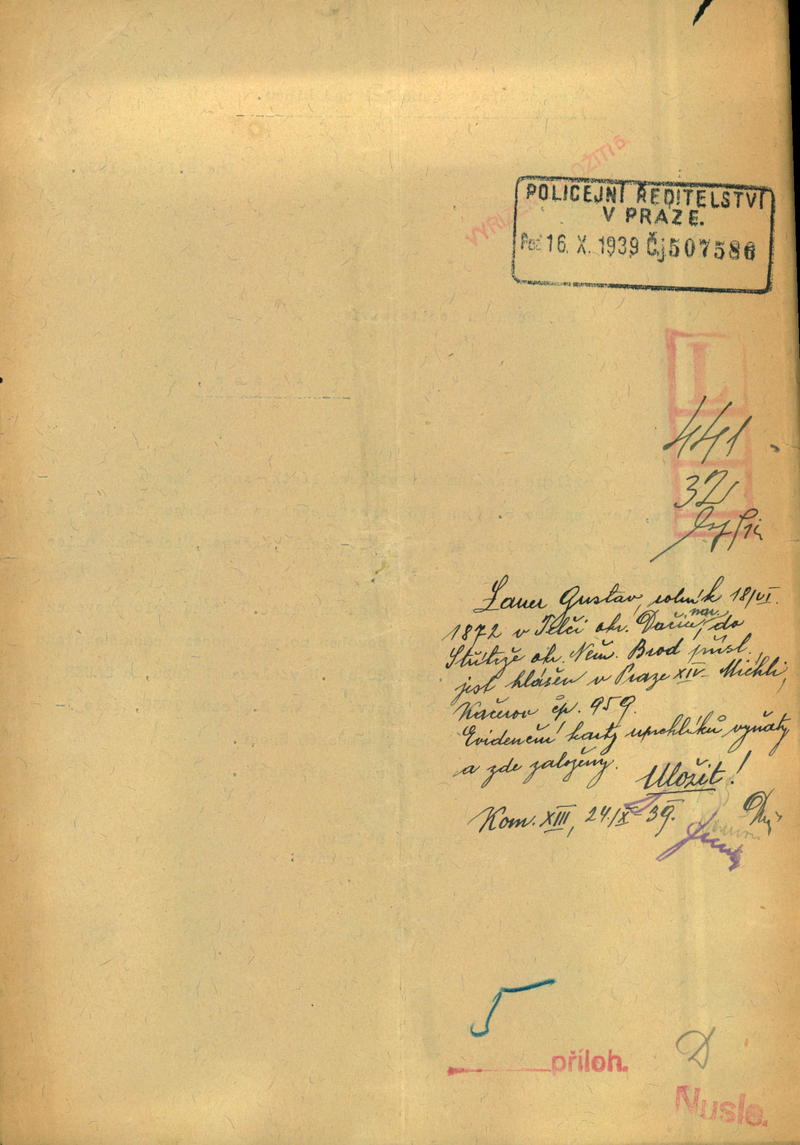 POLICEJNÍ ŘEDITELSTVÍ
V PRAZE.
16. X. 1939 Čj 507586
L
441
32
Lauer Gustav, rolník 18/VI.
1872 v Telči okr. Dačice, nar. do
Střítěže okr. Něm. Brod přísl.,
jest hlášen v Praze XIV- Michli,
Kačerov čp. 959.
Evidenční karty uprchlíků vyňaty
a zde založeny.
Uložit!
Kom. XIII, 24/X 39.
5
příloh.
D
Nusle.